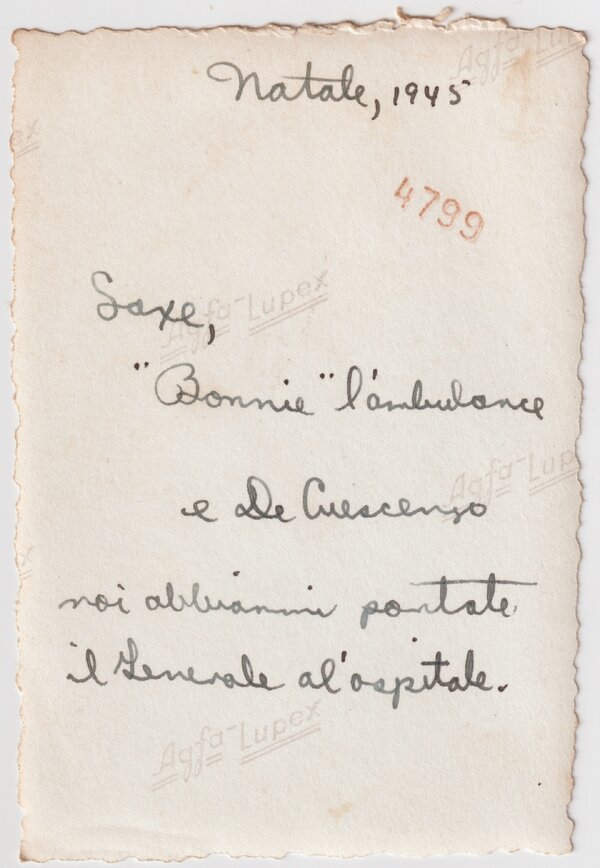 Natale, 1945
4799
Saxe,
"Bonnie" l'ambulance
e De Crescenzo
noi abbiammi portate
il Generale al'ospitale.
Agfa-Lupex
Agfa-Lupex
Agfa-Lupex
Agfa-Lupex